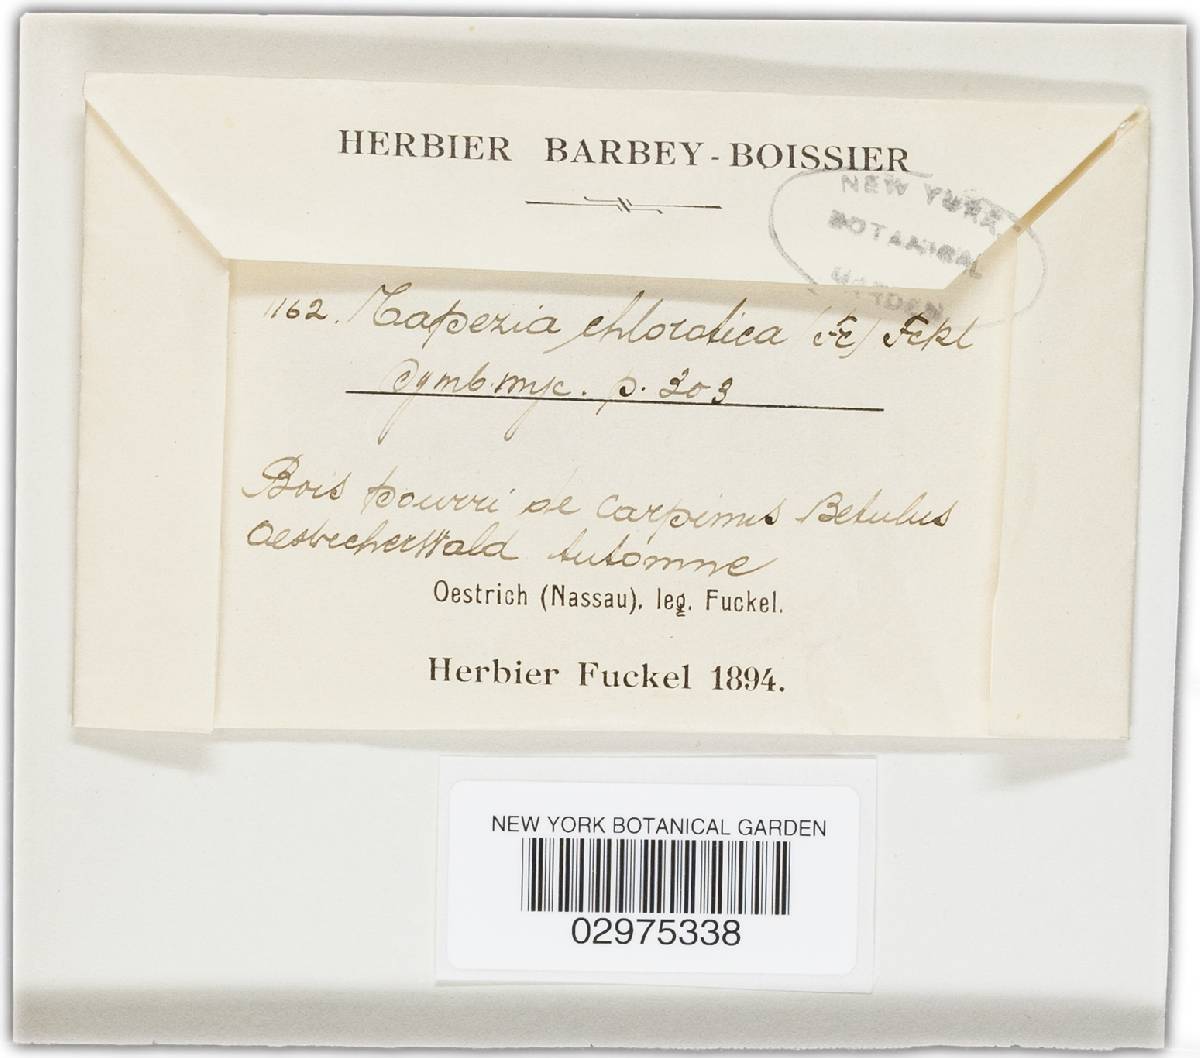 HERBIER BARBEY-BOISSIER
NEW YORK
BOTANICAL
GARDEN
1162. Tapezia chlorotica (Fr) Fckl
Symb. myc. p. 303
Bois pourri de Carpinus Betulus
Oestricher Wald Automne
Oestrich (Nassau), leg. Fuckel.
Herbier Fuckel 1894.
NEW YORK BOTANICAL GARDEN
02975338